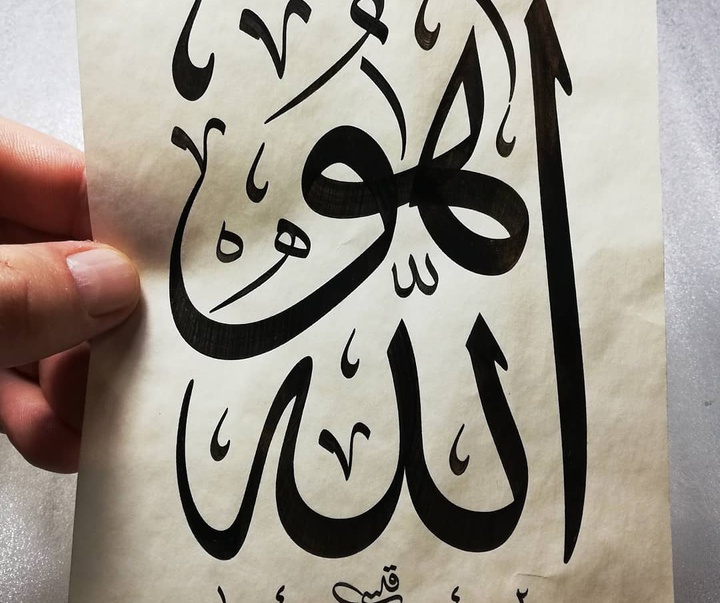 هو
الله